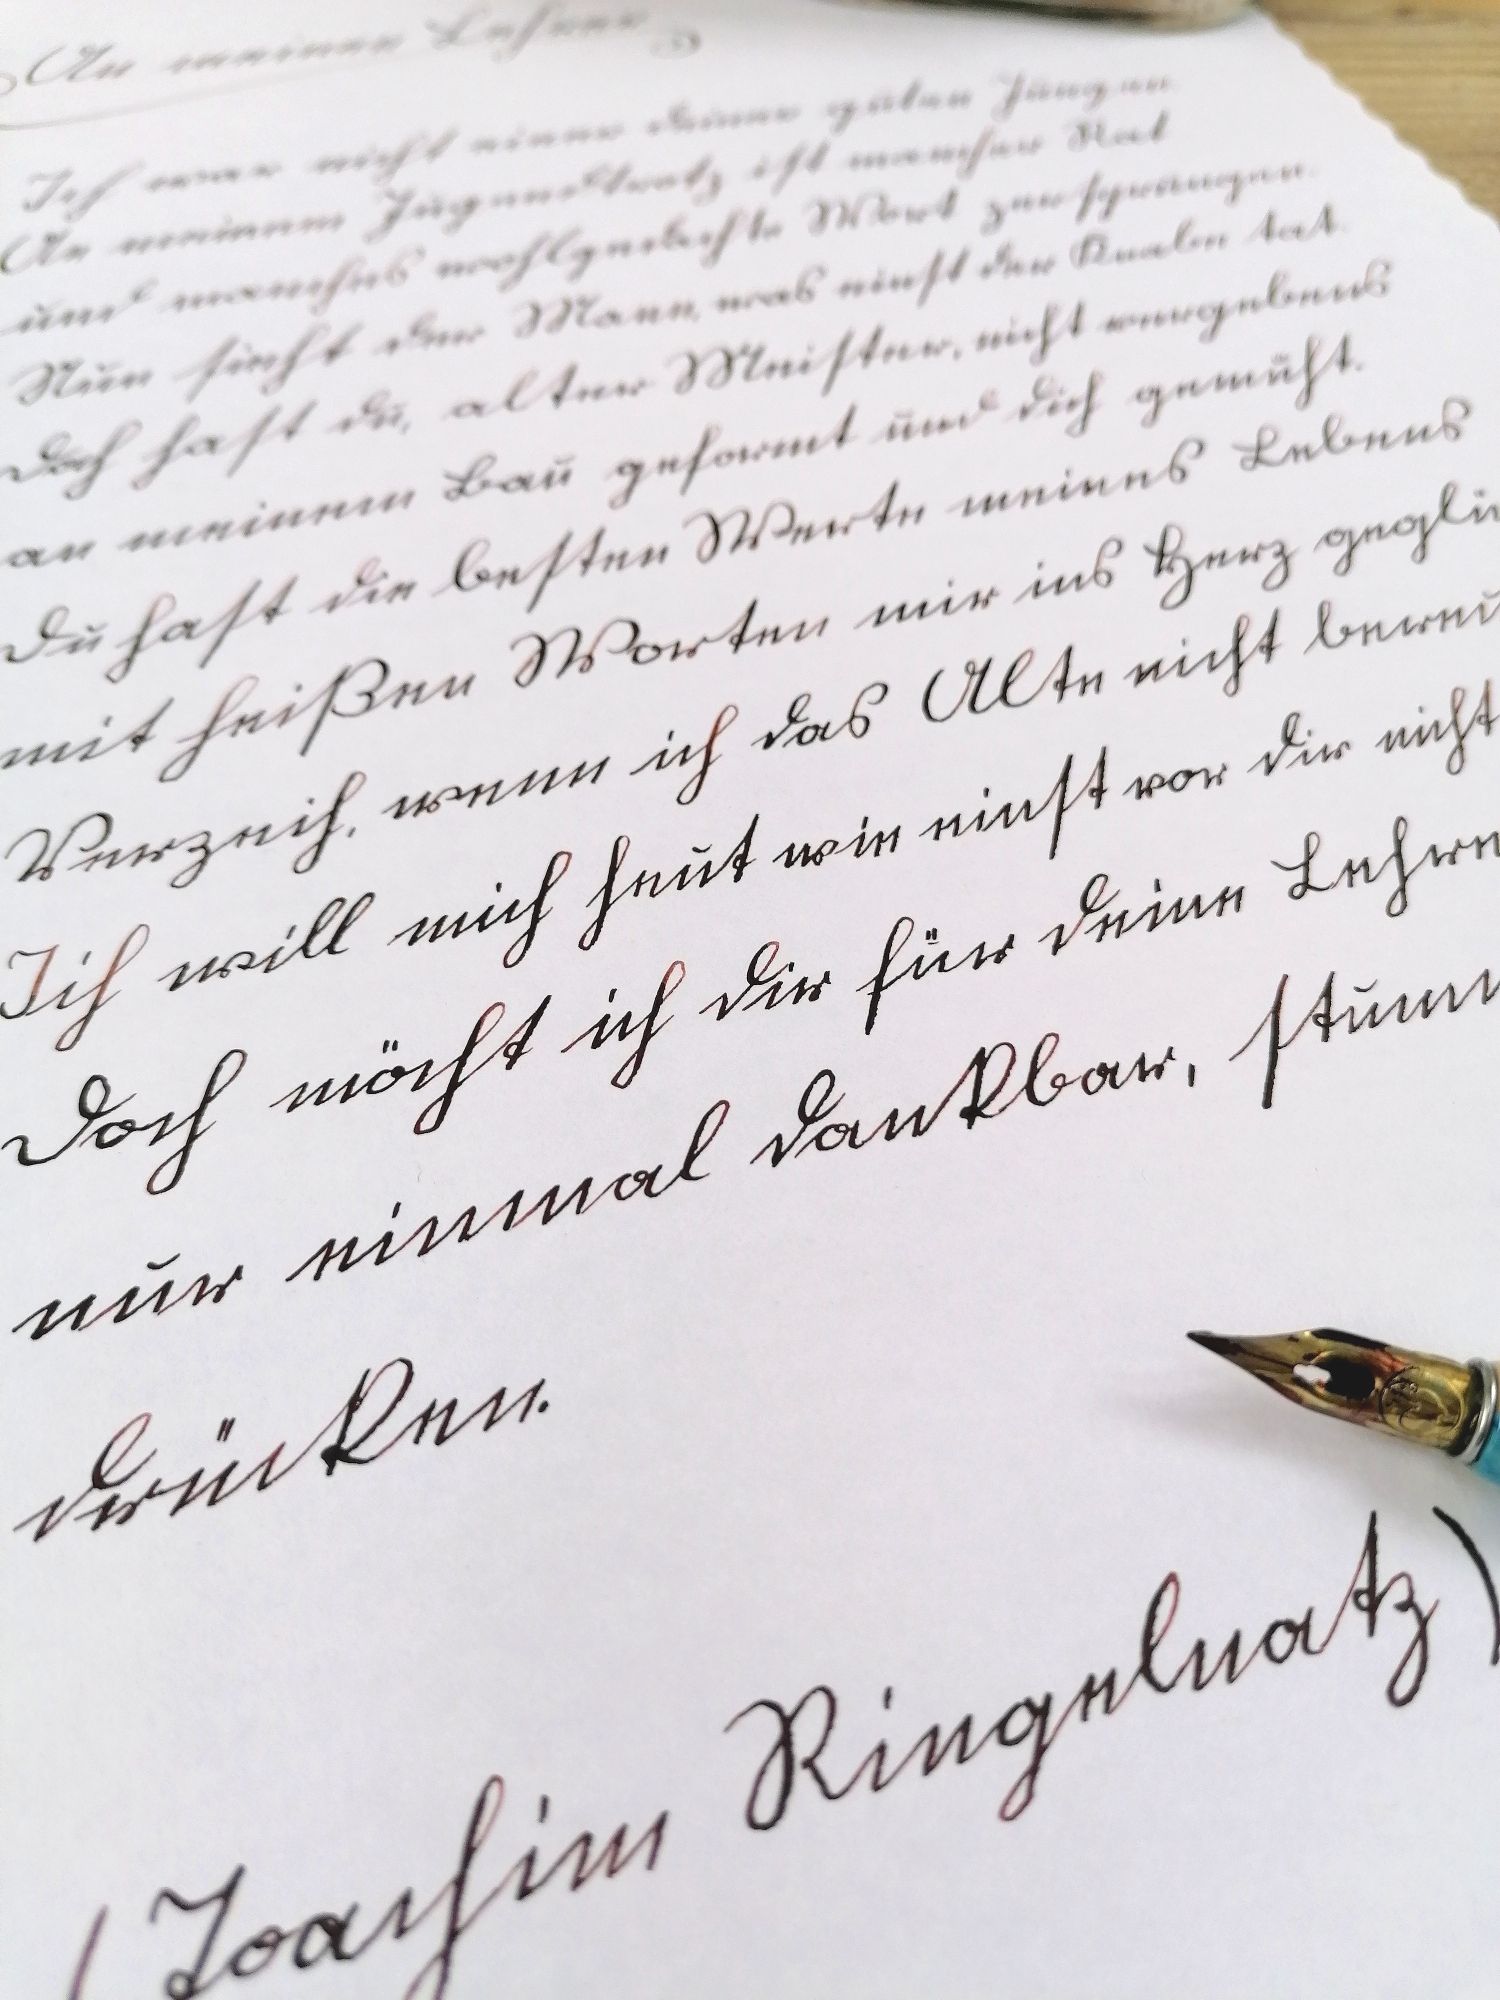 An meinen Lehrer
Ich war nicht einer deiner guten Jungen.
An meinem Jugendtrotz ist mancher Rat
und manches wohlgedachte Wort zersprungen.
Nun sieht der Mann, was einst der Knabe tat.
Doch hast du, alter Meister, nicht vergebens
an meinem Bau geformt und dich gemüht.
Du hast die besten Werte meines Lebens
mit heißen Worten mir ins Herz geglü
Verzeih, wenn ich das Alte nicht bereu
Ich will mich heut wie einst vor dir nicht
Doch möcht ich dir für deine Lehre
nur einmal dankbar, stumm
drücken.
(Joachim Ringelnatz)